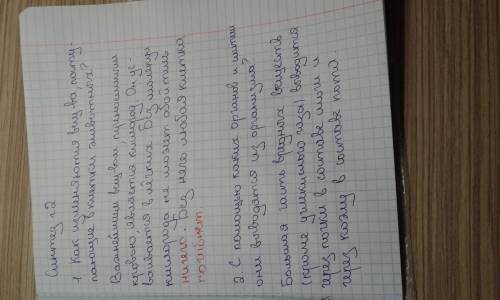 Синтез 2
1 Как изменяются вещ-ва, посту-
пающие в клетки животных?
Важнейшим вещ-вом, переносимым
кровью, является кислород. Он ус-
ваивается в лёгких. Без молекул
кислорода не может обойтись
ничего. Без него любая клетка
погибнет.
2. С помощью каких органов и
они выводятся из организма?
Большая часть вредных веществ
(кроме углекислого газа) выводится
через почки в составе мочи и
через кожу в составе пота.